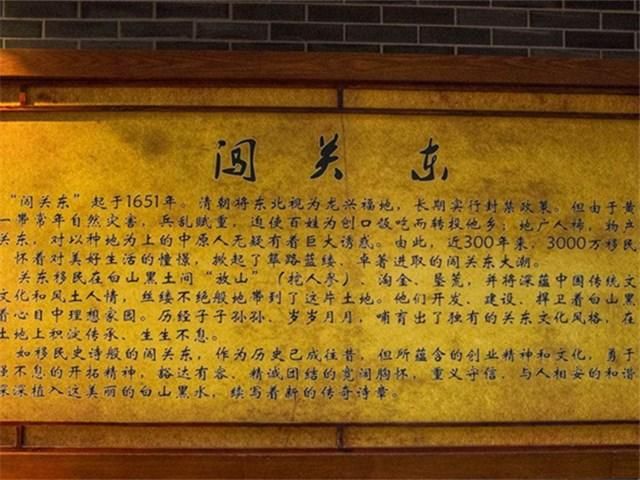 闯关东
“闯关东”起于1651年。清朝将东北视为龙兴福地,长期实行封禁政策。但由于黄
一带常年自然灾害,兵乱赋重,迫使百姓为创口饭吃而转投他乡;地广人稀,物产
关东,对以种地为上的中原人无疑有着巨大诱惑。由此,近300年来,3000万移民
怀着对美好生活的憧憬,掀起了筚路蓝缕、卓著进取的闯关东大潮。
关东移民在白山黑土间“放山”(挖人参)、淘金、垦荒,并将深蕴中国传统文
文化和风土人情,丝缕不绝般地带到了这片土地。他们开发、建设、捍卫着白山黑
着心目中理想家园。历经子子孙孙、岁岁月月,哺育出了独有的关东文化风格,在
土地上积淀传承、生生不息。
如移民史诗般的闯关东,作为历史已成往昔,但所蕴含的创业精神和文化,勇于
强不息的开拓精神,豁达有容、精诚团结的宽阔胸怀,重义守信、与人相安的和谐
深深植入这美丽的白山黑水,续写着新的传奇诗章。